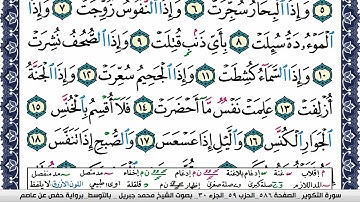 وَإِذَا ٱلْبِحَارُ سُجِّرَتْ ٦ وَإِذَا ٱلنُّفُوسُ زُوِّجَتْ ٧ وَإِذَا
ٱلْمَوْءُۥدَةُ سُئِلَتْ ٨ بِأَىِّ ذَنۢبٍ قُتِلَتْ ٩ وَإِذَا ٱلصُّحُفُ نُشِرَتْ
١٠ وَإِذَا ٱلسَّمَآءُ كُشِطَتْ ١١ وَإِذَا ٱلْجَحِيمُ سُعِّرَتْ ١٢ وَإِذَا ٱلْجَنَّةُ
أُزْلِفَتْ ١٣ عَلِمَتْ نَفْسٌ مَّآ أَحْضَرَتْ ١٤ فَلَآ أُقْسِمُ بِٱلْخُنَّسِ ١٥
ٱلْجَوَارِ ٱلْكُنَّسِ ١٦ وَٱلَّيْلِ إِذَا عَسْعَسَ ١٧ وَٱلصُّبْحِ إِذَا تَنَفَّسَ ١٨
سورة التكوير - الصفحة ٥٨٦ - الحزب ٥٩ - الجزء ٣٠ - بصوت الشيخ محمد جبريل - بالتوسط - برواية حفص عن عاصم